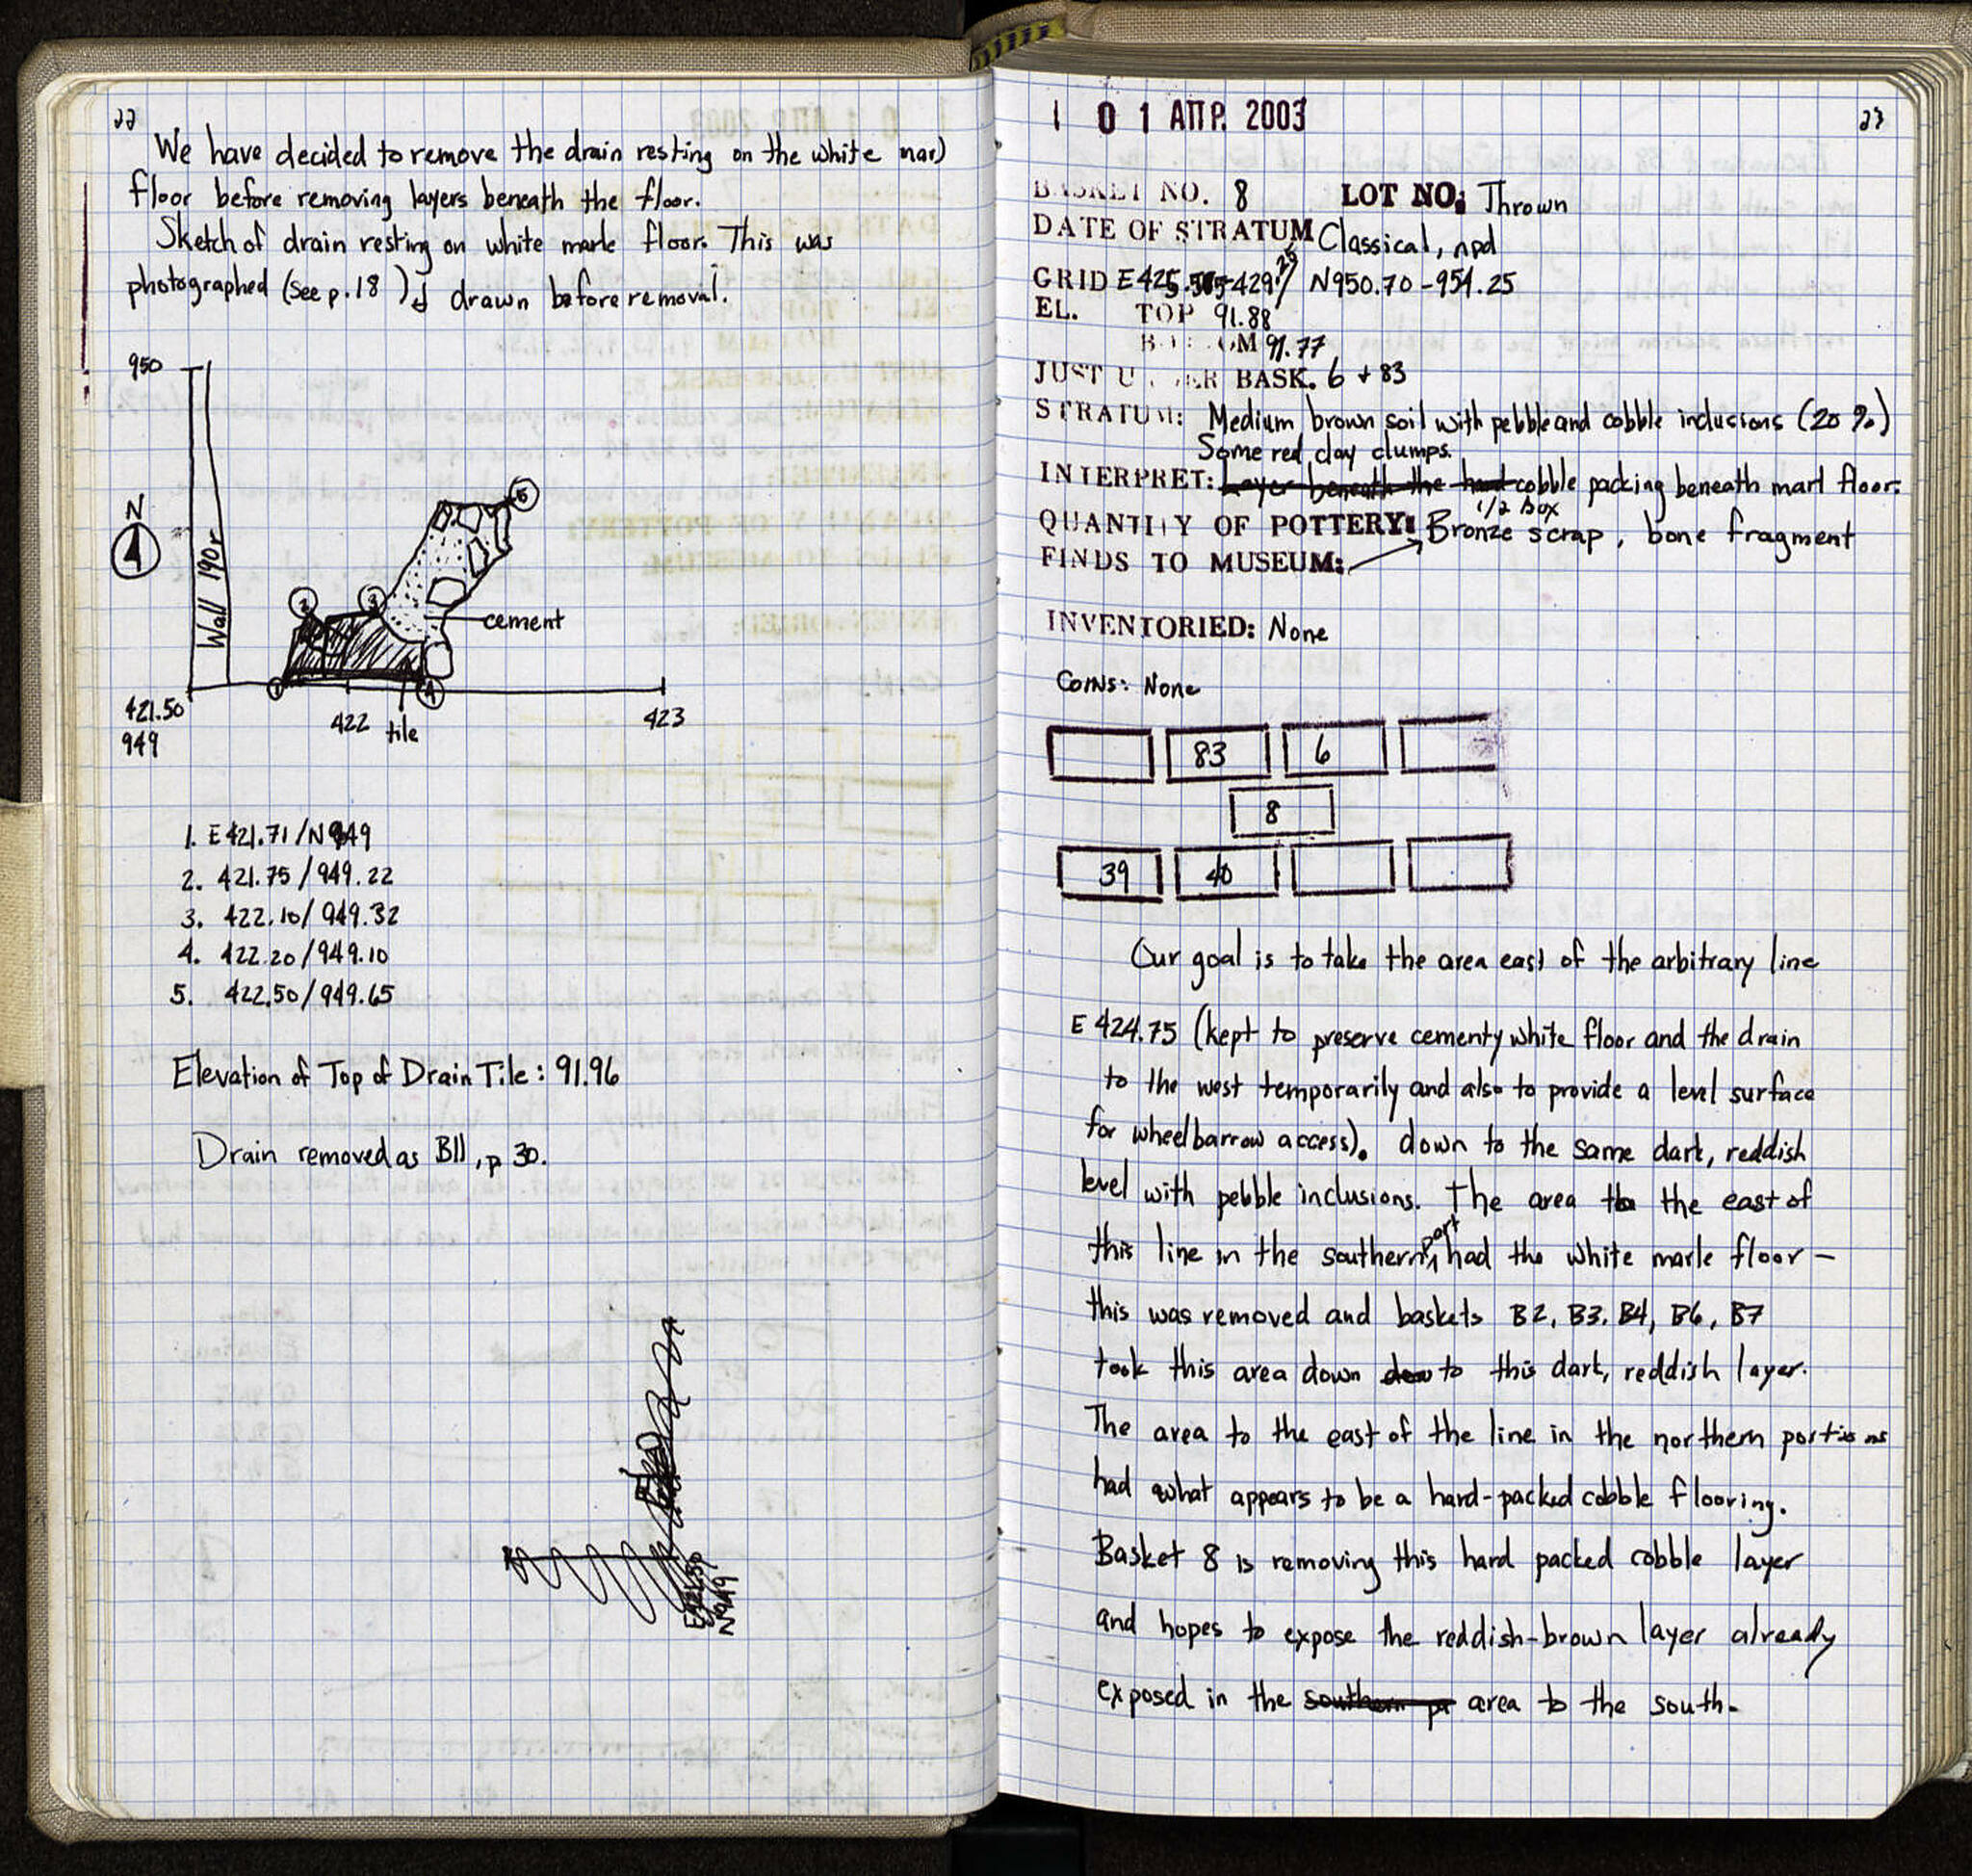 22
We have decided to remove the drain resting on the white marl
floor before removing layers beneath the floor.
Sketch of drain resting on white marle floor. This was
photographed (see p.18) & drawn before removal.
950
N
Wall 190r
5
2
3
cement
1
4
421.50
949
422
tile
423
1. E421.71/N949
2. 421.75/949.22
3. 422.10/949.32
4. 422.20/949.10
5. 422.50/949.65
Elevation of Top of Drain Tile: 91.96
Drain removed as B11, p 30.
N949
0 1 ΑΠΡ. 2003
23
BASKET NO. 8 LOT NO: Thrown
DATE OF STRATUM Classical, npd
GRID E425.-429.25/ N950.70-954.25
EL. TOP 91.88
BOTTOM 91.77
JUST UNDER BASK. 6 + 83
STRATUM: Medium brown soil with pebble and cobble inclusions (20%)
Some red clay clumps.
INTERPRET: Layer beneath the hard cobble packing beneath marl floor.
1/2 Box
QUANTITY OF POTTERY: Bronze scrap, bone fragment
FINDS TO MUSEUM:
INVENTORIED: None
Coins: None
83 6
8
39 40
Our goal is to take the area east of the arbitrary line
E 424.75 (kept to preserve cementy white floor and the drain
to the west temporarily and also to provide a level surface
for wheelbarrow access). down to the same dark, reddish
level with pebble inclusions. The area to the east of
this line in the southern part had the white marle floor –
this was removed and baskets B2, B3, B4, B6, B7
took this area down dow to this dark, reddish layer.
The area to the east of the line in the northern portions
had what appears to be a hard-packed cobble flooring.
Basket 8 is removing this hard packed cobble layer
and hopes to expose the reddish-brown layer already
exposed in the southern pt area to the south.